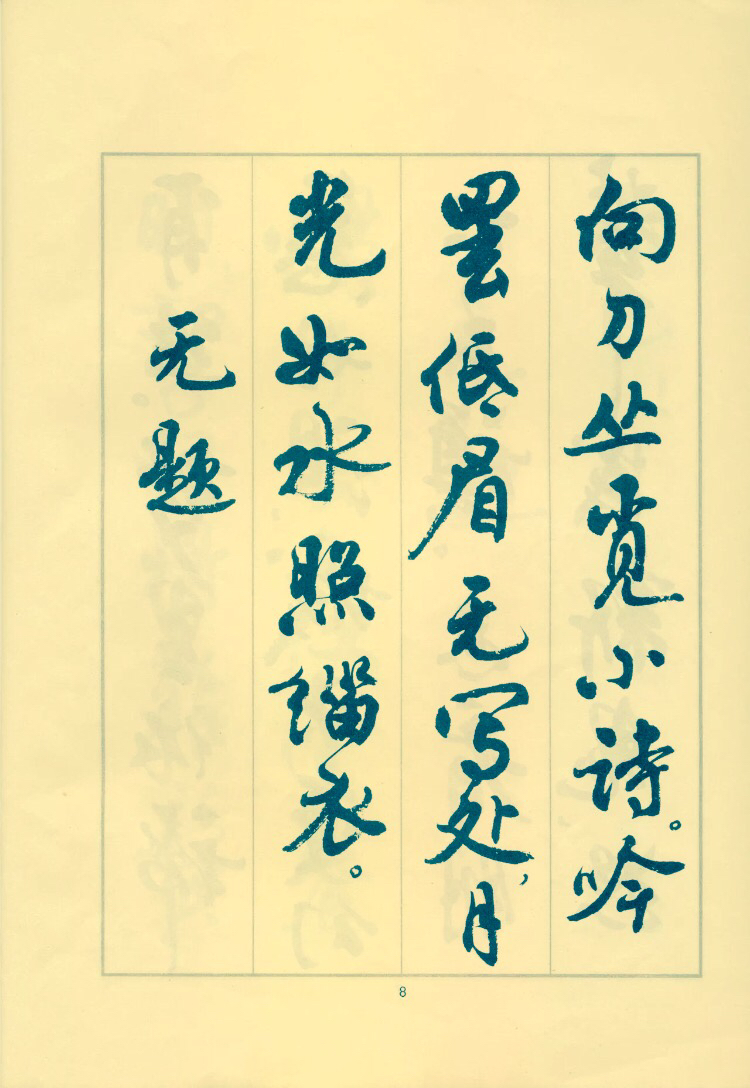 向刀丛觅小詩。吟
罢低眉无写处，月
光如水照缁衣。
无题
8